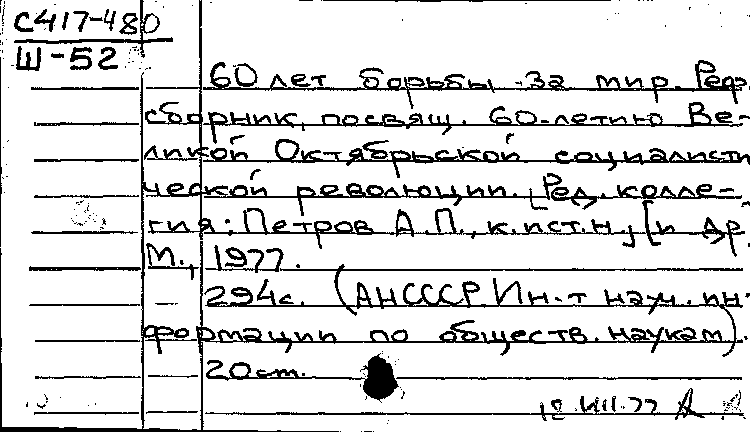 С417-480
Ш-52
60 лет борьбы за мир. Реф.
сборник, посвящ. 60-летию Ве-
ликой Октябрьской социалисти
ческой революции. [Ред. колле-
гия: Петров А.П., к.ист.н., [и др.
М., 1977.
294с. (АНСССР Ин-т науч. ин-
формации по обществ. наукам).
20ст.
12.VIII.77